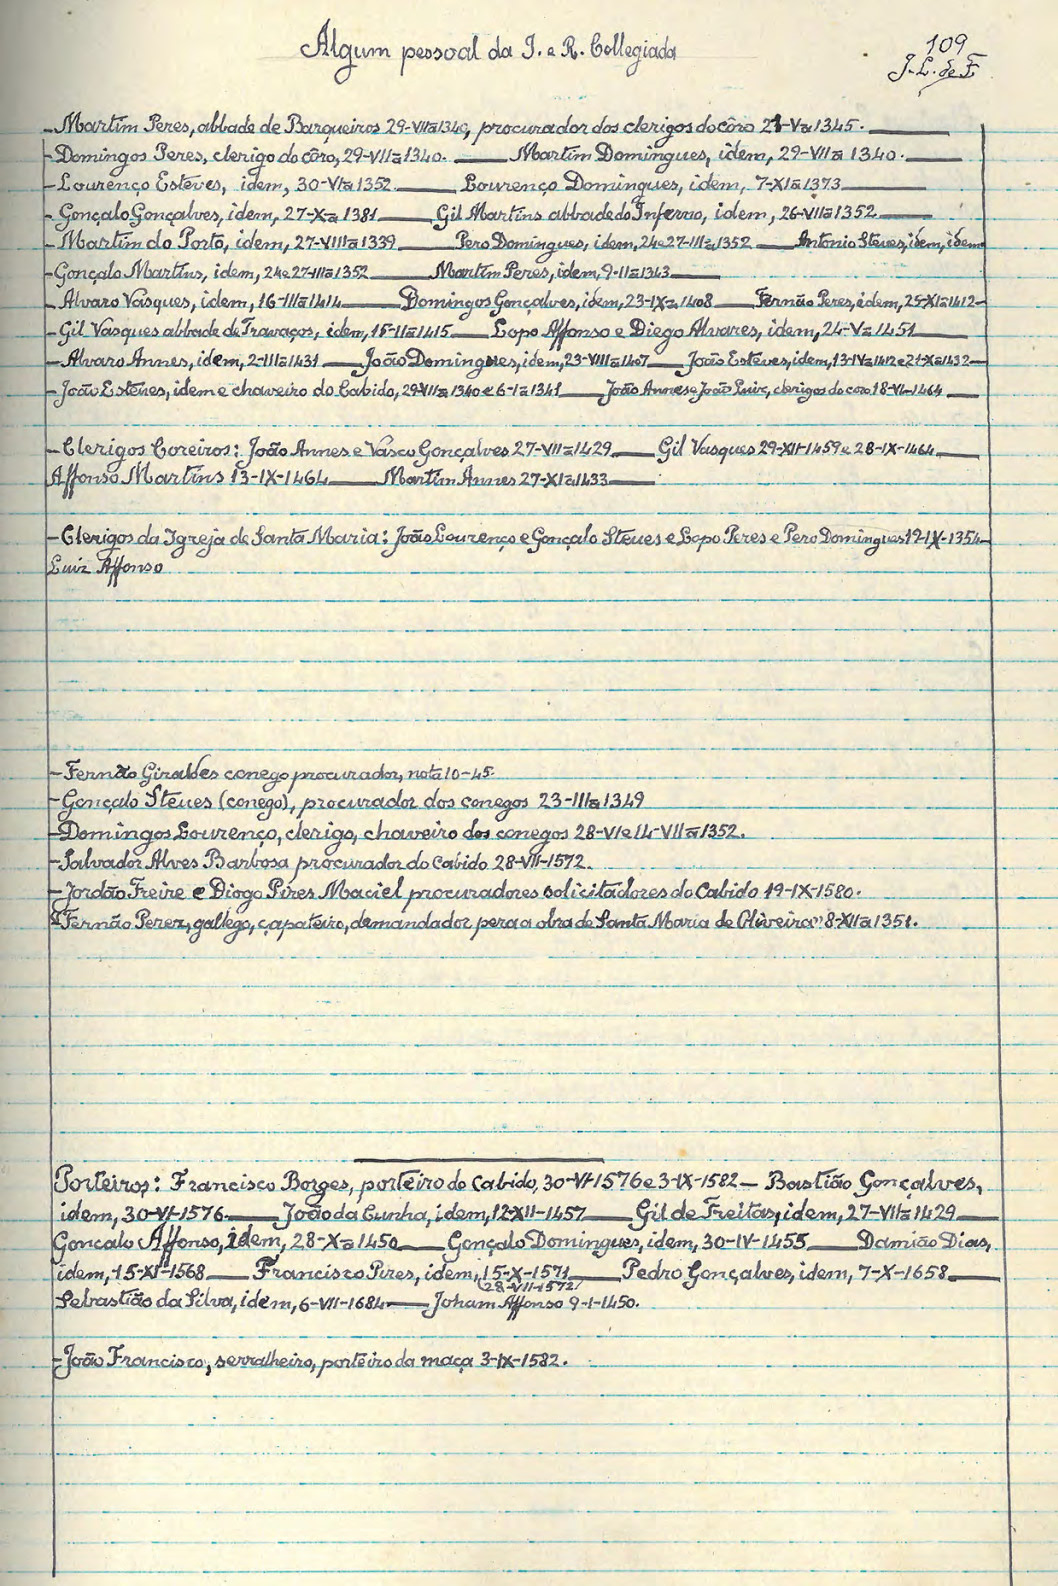 Algum pessoal da I. e R. Collegiada
109
J. L. de F.
- Martim Peres, abbade de Barqueiros 29-VII=1340, procurador dos clerigos do côro 21-V=1345.
- Domingos Peres, clerigo do côro, 29-VII=1340. Martim Domingues, idem, 29-VII=1340.
- Lourenço Esteves, idem, 30-VI=1352 Lourenço Domingues, idem, 7-XI=1373
- Gonçalo Gonçalves, idem, 27-X=1381 Gil Martins abbade do Inferno, idem, 26-VII=1352
- Martim do Porto, idem, 27-VIII=1339 Pero Domingues, idem, 24 e 27-III=1352 Antonio Steves, idem, idem
- Gonçalo Martins, idem, 24 e 27-III=1352 Martim Peres, idem, 9-II=1343
- Alvaro Vasques, idem, 16-III=1414 Domingos Gonçalves, idem, 23-IX=1408 Fernão Peres, idem, 25-XI=1412
- Gil Vasques abbade de Travaços, idem, 15-II=1415 Lopo Affonso e Diego Alvares, idem, 24-V=1451
- Alvaro Annes, idem, 2-III=1431 João Domingues, idem, 23-VIII=1407 João Esteves, idem, 13-IV=1412 e 21-X=1432
- João Esteves, idem e chaveiro do Cabido, 29-VII=1340 e 6-I=1341 João Annes e João Luiz, clerigos do coro 18-VI-1464
- Clerigos Coreiros: João Annes e Vasco Gonçalves 27-VII=1429 Gil Vasques 29-XII-1459 e 28-IX-1464
Affonso Martins 13-IX-1464 Martim Annes 27-XI=1433
- Clerigos da Igreja de Santa Maria: João Lourenço e Gonçalo Steves e Lopo Peres e Pero Domingues 19-IX-1354
Luiz Affonso
- Fernão Giraldes conego procurador, nota 10-45.
- Gonçalo Steves (conego), procurador dos conegos 23-III=1349
- Domingos Lourenço, clerigo, chaveiro dos conegos 28-VI e 14-VII=1352.
- Salvador Alves Barbosa procurador do Cabido 28-VII-1572.
- Jordão Freire e Diogo Pires Maciel procuradores solicitadores do Cabido 19-IX-1580.
"Fernão Perez, gallego, çapateiro, demandador pera a obra de Santa Maria de Oliveira" 8-XII=1351.
Porteiros: Francisco Borges, porteiro do Cabido, 30-VI-1576 e 3-IX-1582 — Bastião Gonçalves,
idem, 30-VI-1576 João da Cunha, idem, 12-XII-1457 Gil de Freitas, idem, 27-VII=1429
Goncalo Affonso, idem, 28-X=1450 Gonçalo Domingues, idem, 30-IV-1455 Damião Dias,
idem, 15-XI-1568 Francisco Pires, idem, 15-X-1571 Pedro Gonçalves, idem, 7-X-1658
28-VII-1572
Sebastião da Silva, idem, 6-VII-1684 Joham Affonso 9-I-1450.
- João Francisco, serralheiro, porteiro da maça 3-IX-1582.